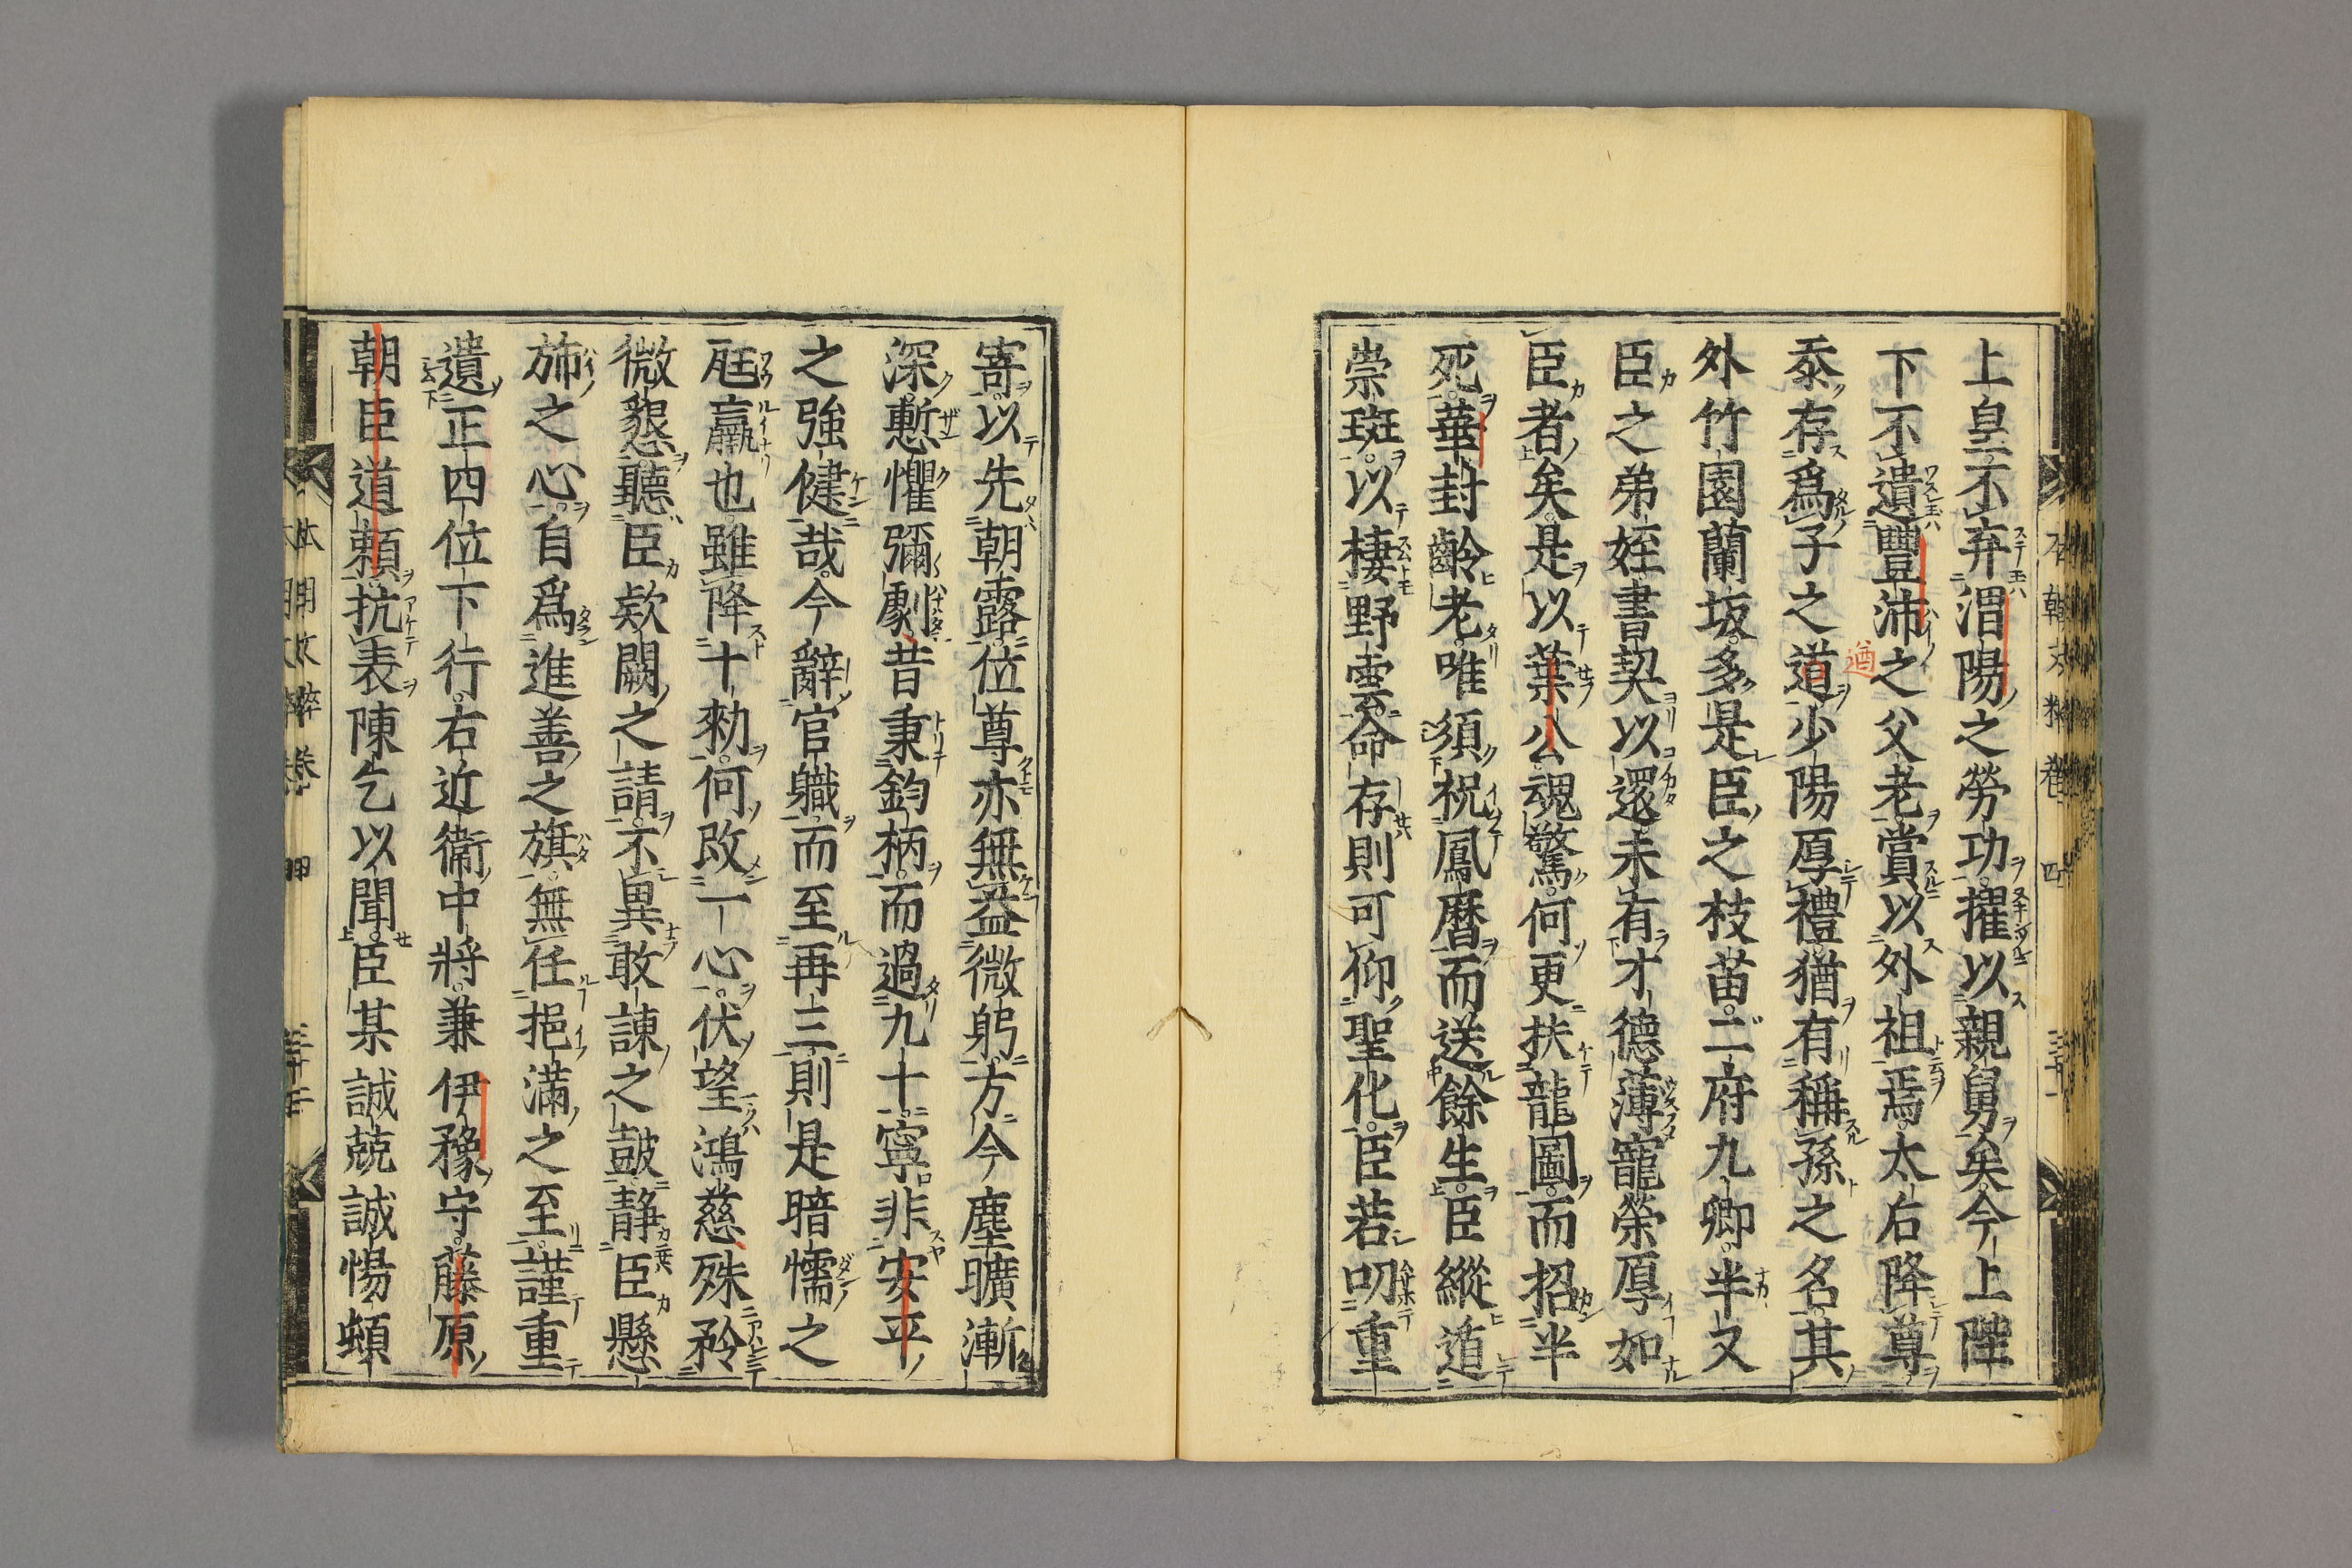 上皇不弃渭陽之勞功擢以親舅矣今上陛
下不遺豐沛之父老賞以外祖焉太后降尊
忝存爲子之道少陽厚禮猶有稱孫之名其
遒
外竹園蘭坂多是臣之枝苗二府九卿半又
臣之弟姪書契以還未有才德薄寵榮厚如
臣者矣是以葉公魂驚何更扶龍圖而招半
死華封齡老唯須祝鳳曆而送餘生臣縱遁
崇班以棲野雲命存則可仰聖化臣若叨重
寄以先朝露位尊亦無益微躬方今塵曠漸
深慙懼彌劇昔秉鈞柄而過九十寧非安平
之強健哉今辭官軄而至再三則是暗懦之
尫羸也雖降十勑何改一心伏望鴻慈殊矜
微懇聽臣欵闕之請不異敢諫之鼓静臣懸
斾之心自爲進善之旗無任挹滿之至謹重
遺正四位下行右近衞中將兼伊豫守藤原
朝臣道頼抗表陳乞以聞臣某誠兢誠惕頓
本朝文粹卷 四